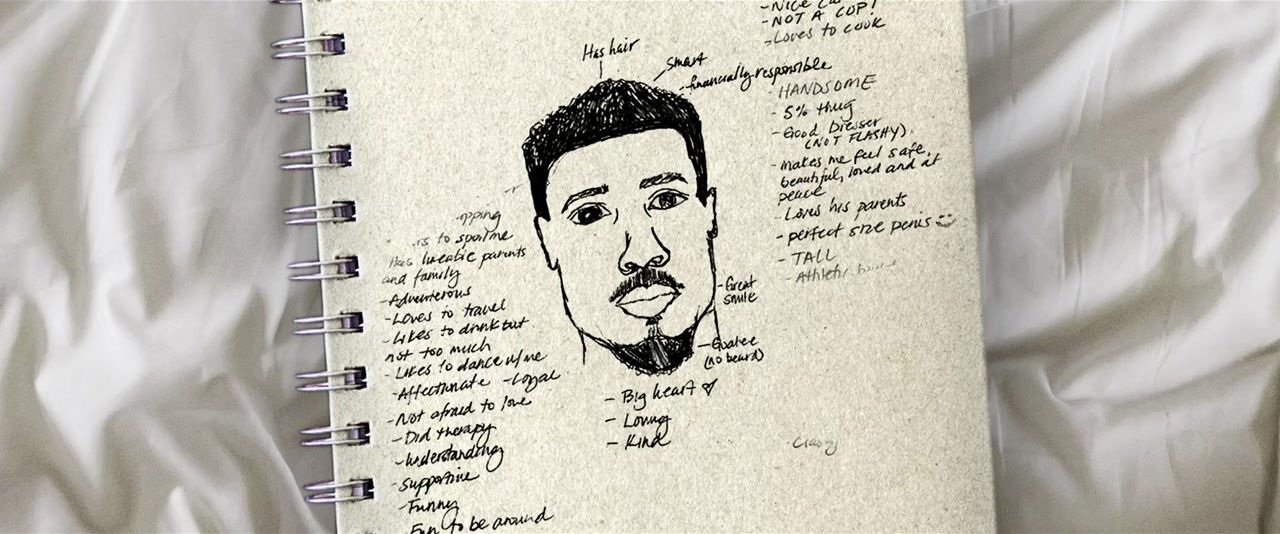 - NICE
- NOT A COP!
- Loves to cook
Has hair
Smart
- financially responsible
- HANDSOME
- 5% thug
- Good Dresser
(NOT FLASHY)
- makes me feel safe,
beautiful, loved and at
peace
- Loves his parents
- perfect size penis
- TALL
- Athletic
and family
- Adventerous
- Loves to travel
- Likes to drink but
not too much
- Likes to dance w/me
- Affectionate - Loyal
- Not afraid to love
- Did therapy
- understanding
- supportive
- Funny
- Fun to be around
- Great
smile
- Goatee
(no beard)
- Big heart
- Loving
- Kind